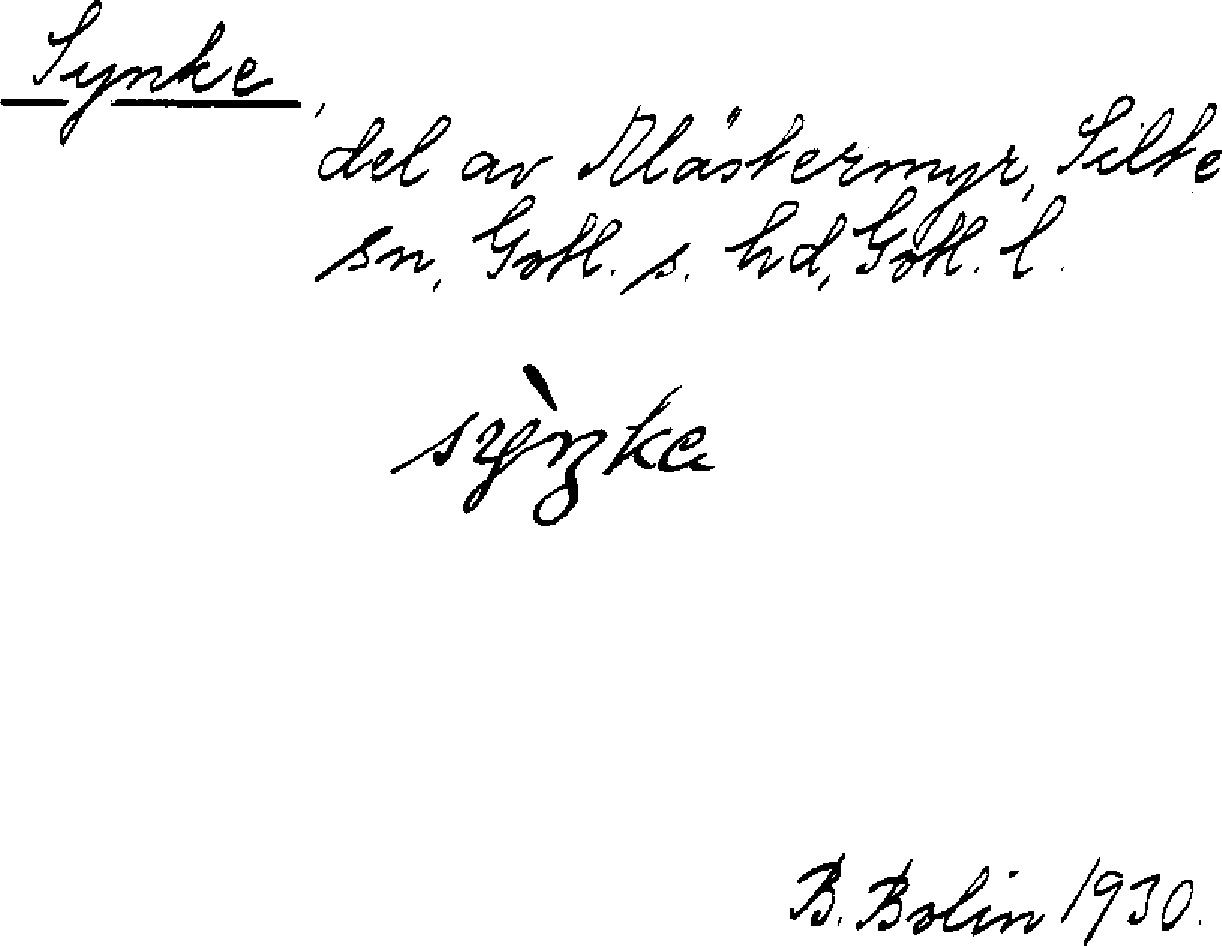 Synke,
del av Mästermyr, Silte
sn, Gotl. s. hd, Gotl. l.
sỳŋkɐ
B. Bolin 1930.